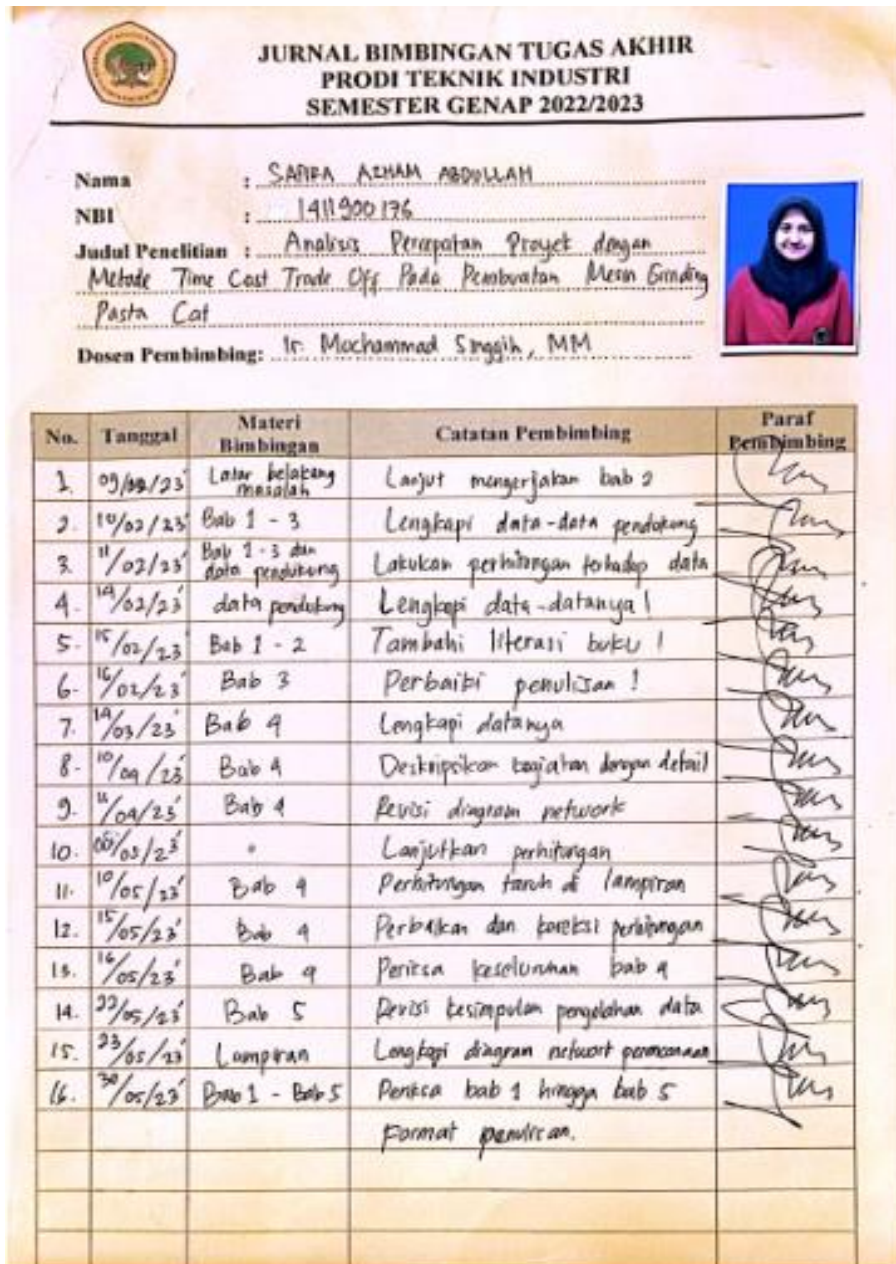 JURNAL BIMBINGAN TUGAS AKHIR
PRODI TEKNIK INDUSTRI
SEMESTER GENAP 2022/2023
Nama : SAFIRA AZHAM ABDULLAH
NBI : 1411900176
Judul Penelitian : Analisis Percepatan Proyek dengan
Metode Time Cost Trade Off Pada Pembuatan Mesin Grinding
Pasta Cat
Dosen Pembimbing: Ir. Mochammad Singgih, MM
No. Tanggal Materi Bimbingan Catatan Pembimbing Paraf Pembimbing
1. Latar belakang masalah Lanjut mengerjakan bab 2
2. 10/02/23 Bab 1 - 3 Lengkapi data-data pendukung
3. 11/02/23 Bab 1-3 dan data pendukung Lakukan perhitungan terhadap data
4. 14/02/23 data pendukung Lengkapi data-datanya !
5. 15/02/23 Bab 1 - 2 Tambahi literasi buku !
6. 16/02/23 Bab 3 Perbaiki penulisan !
7. 14/03/23 Bab 4 Lengkapi datanya
8. 10/04/23 Bab 4 Deskripsikan kegiatan dengan detail
9. 11/04/23 Bab 4 Revisi diagram network
10. " Lanjutkan perhitungan
11. 10/05/23 Bab 4 Perhitungan taruh di lampiran
12. 15/05/23 Bab 4 Perbaikan dan koreksi perhitungan
13. 16/05/23 Bab 4 Periksa keseluruhan bab 4
14. 22/05/23 Bab 5 Revisi kesimpulan pengolahan data
15. 23/05/23 Lampiran Lengkapi diagram network perencanaan
16. 30/05/23 Bab 1 - Bab 5 Periksa bab 1 hingga bab 5
Format penulisan.